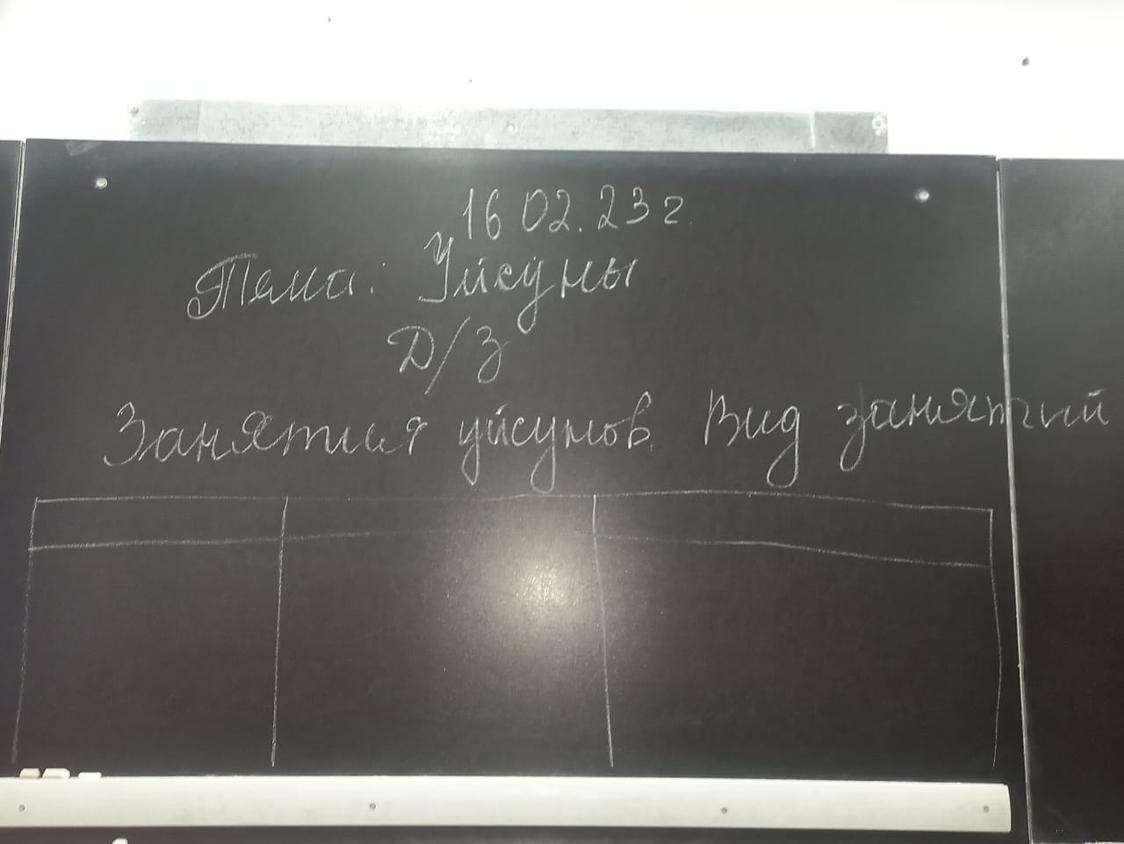 16 02.23 г.
Тема: Уйсуны
Д/З
Занятия уйсунов. Вид занятий